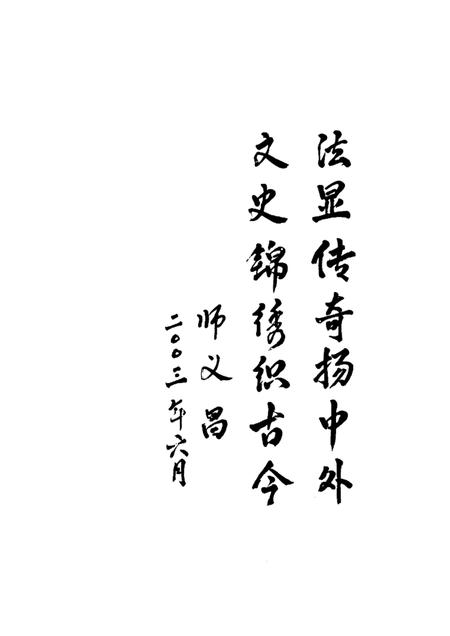 法显传奇扬中外
文史锦绣织古今
师义昌
二〇〇三年六月